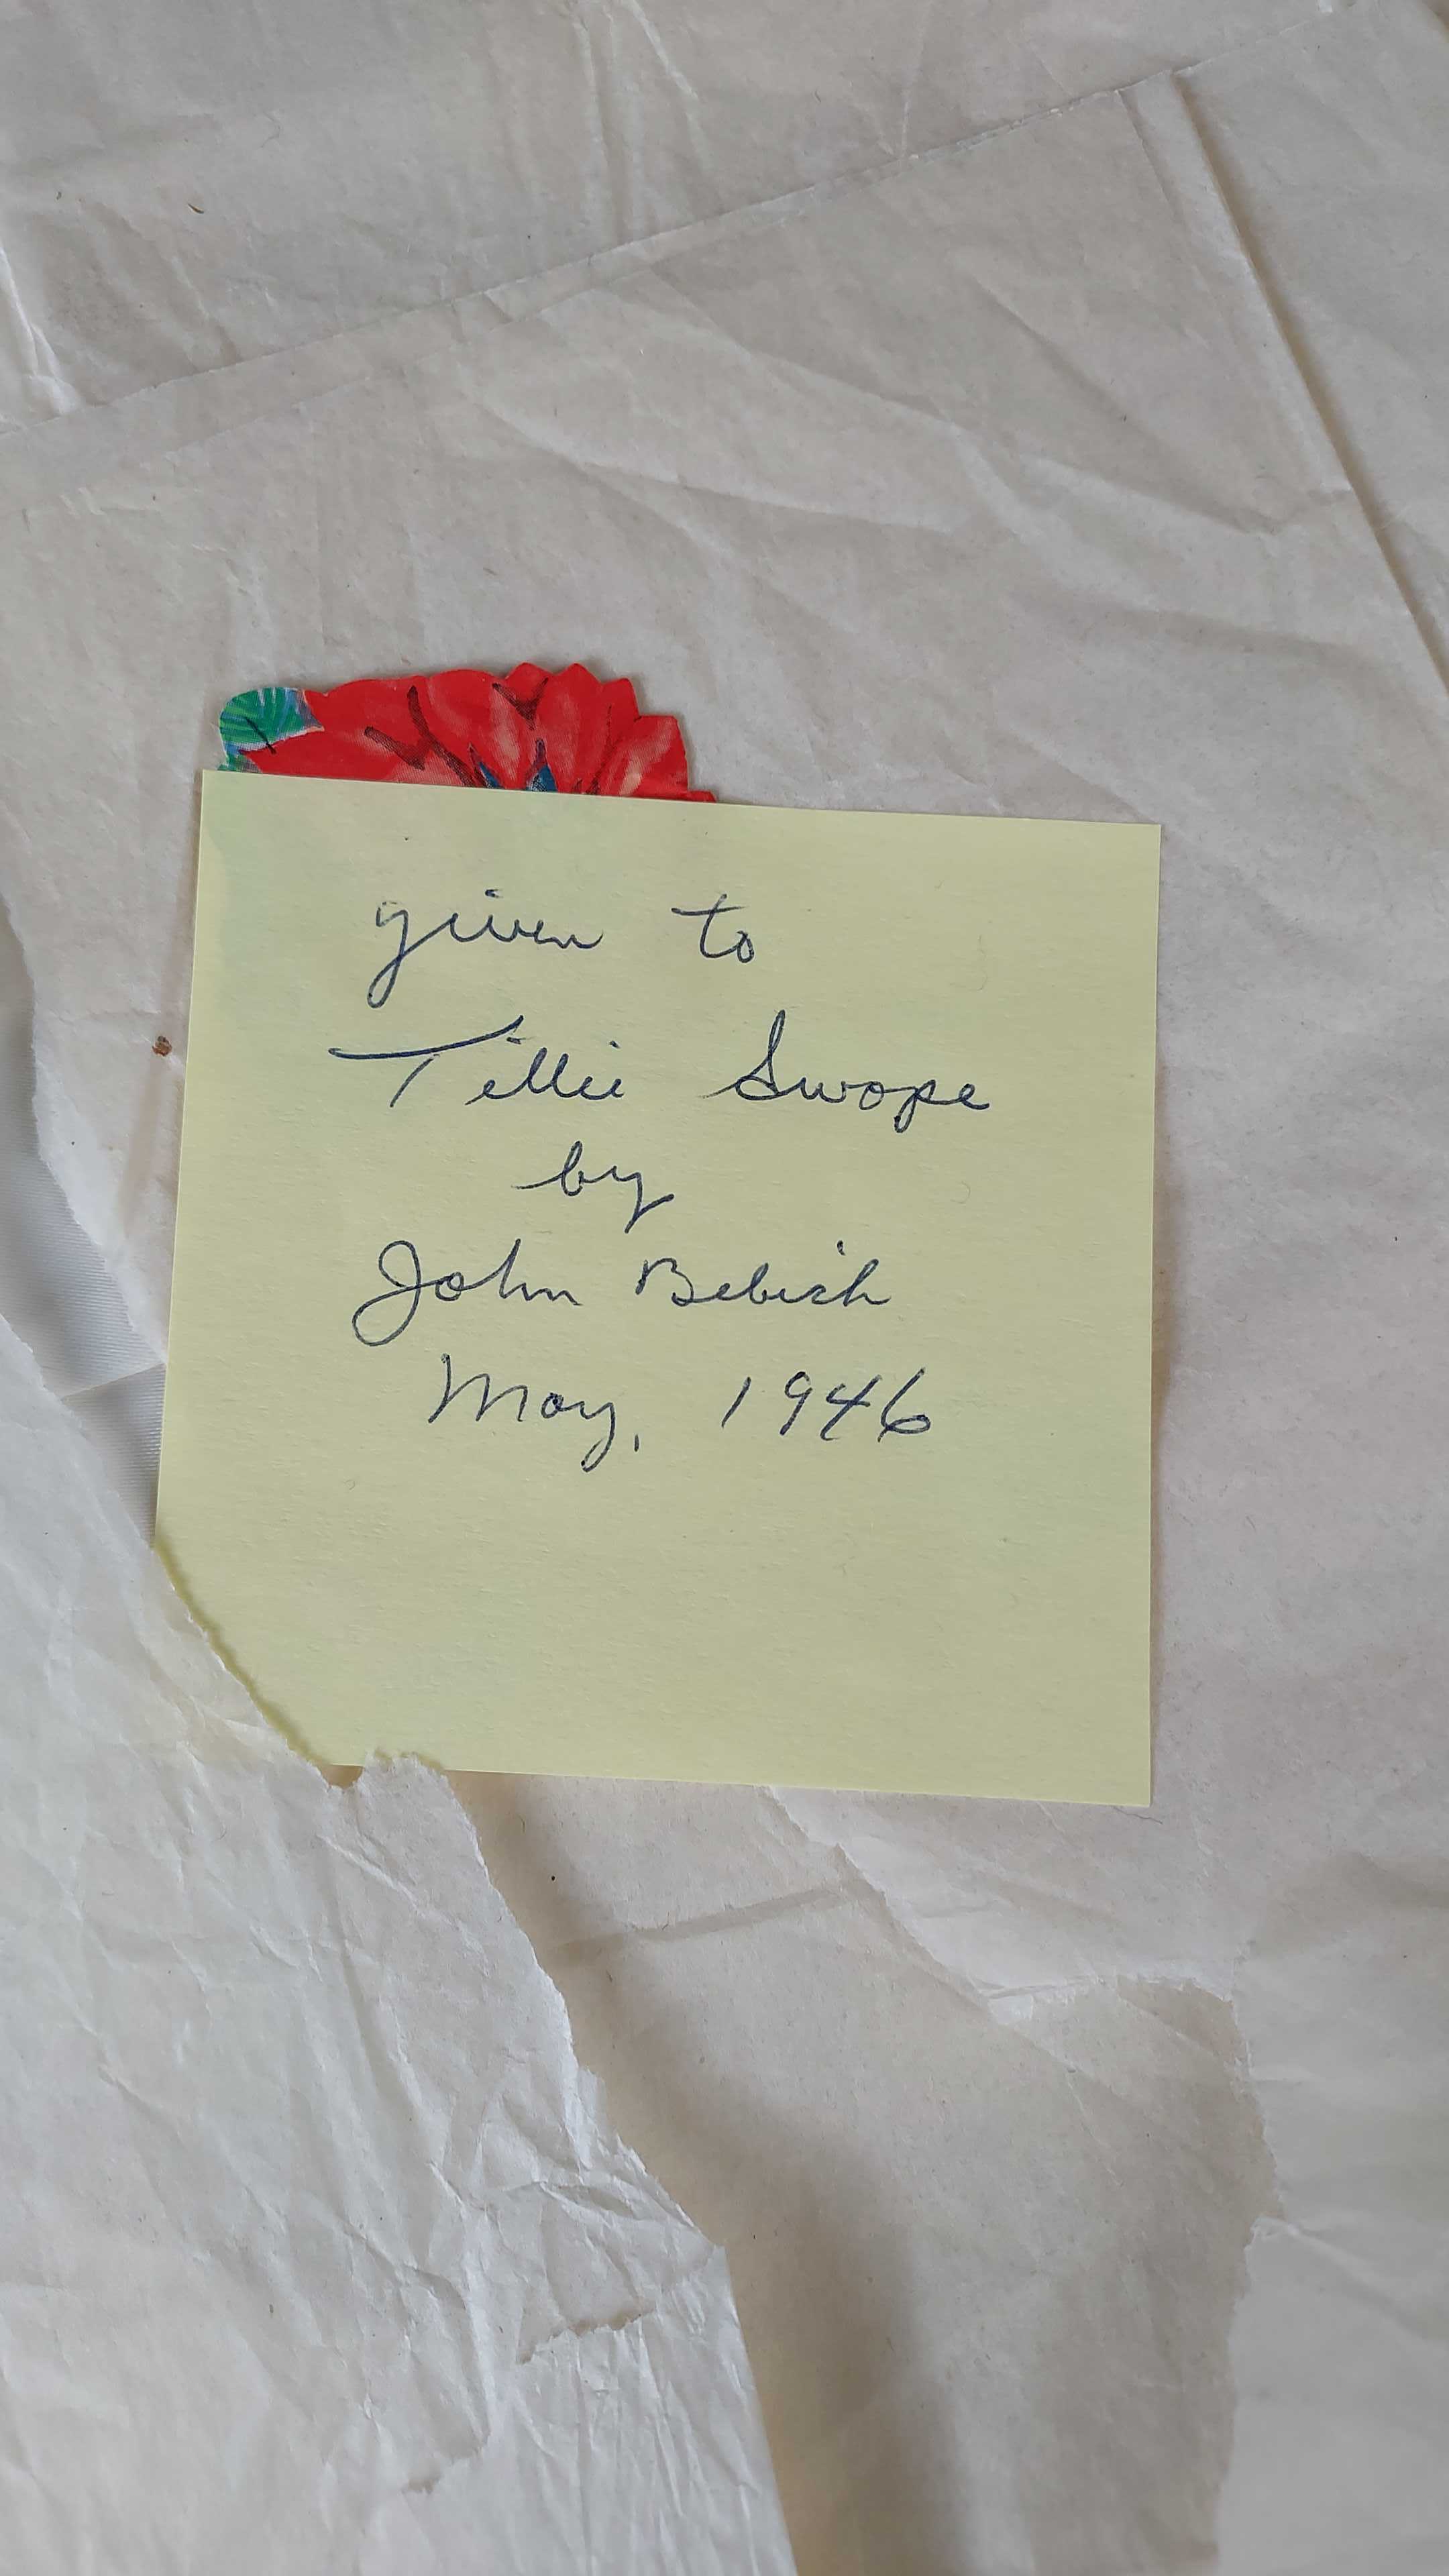 given to
Tillie Swope
by
John Bebich
May, 1946